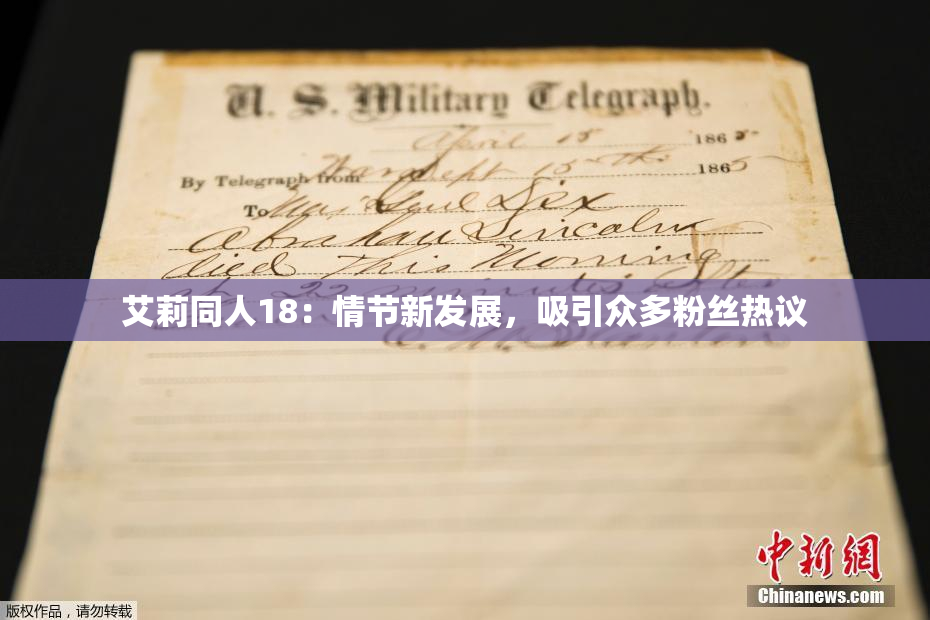 U. S. Military Telegraph.
April 15 1865
By Telegraph from War Dept 15th 1865
To Maj Genl Dix
Abraham Lincoln
died This Morning
at 22 minutes after
艾莉同人18：情节新发展，吸引众多粉丝热议
E. M. Stanton
中新网
Chinanews.com
版权作品，请勿转载